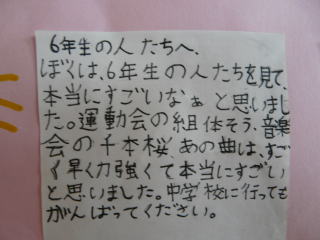 6年生の人たちへ、
ぼくは、6年生の人たちを見て、
本当にすごいなぁと思いまし
た。運動会の組体そう、音楽
会の千本桜あの曲は、すご
く早く力強くて本当にすごい
と思いました。中学校に行っても
がんばってください。